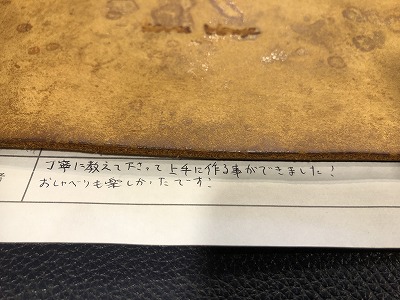 丁寧に教えて下さって上手に作る事ができました!
おしゃべりも楽しかったです!